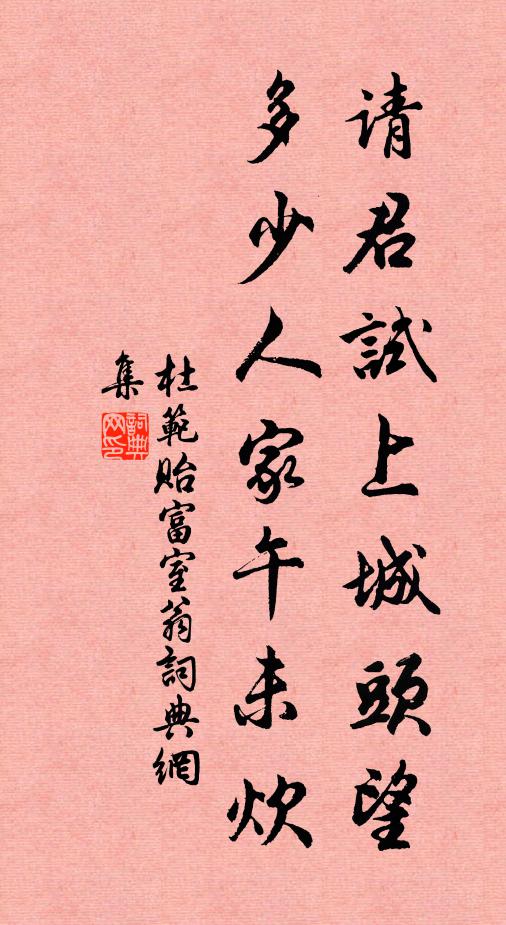 请君試上城頭望
多少人家午未炊
杜範貽富室翁詞典網
集
詞典
网印